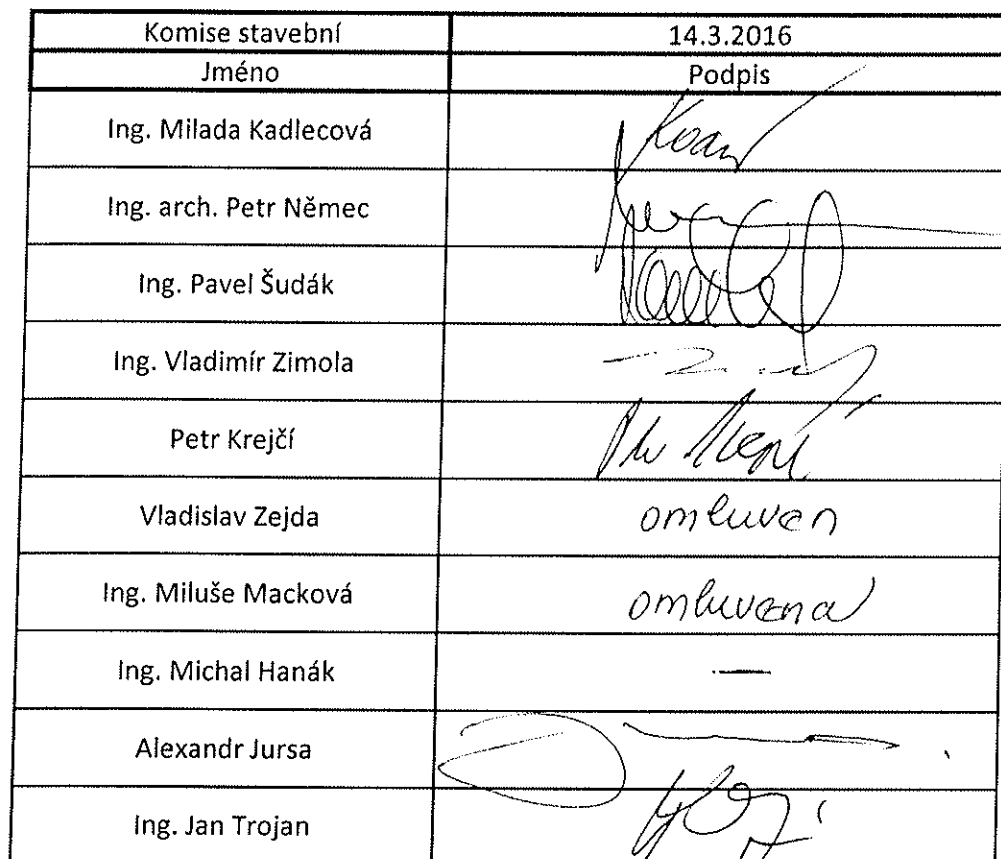 Komise stavební 14.3.2016
Jméno Podpis
Ing. Milada Kadlecová
Ing. arch. Petr Němec
Ing. Pavel Šudák
Ing. Vladimír Zimola
Petr Krejčí
Vladislav Zejda omluven
Ing. Miluše Macková omluvena
Ing. Michal Hanák —
Alexandr Jursa
Ing. Jan Trojan